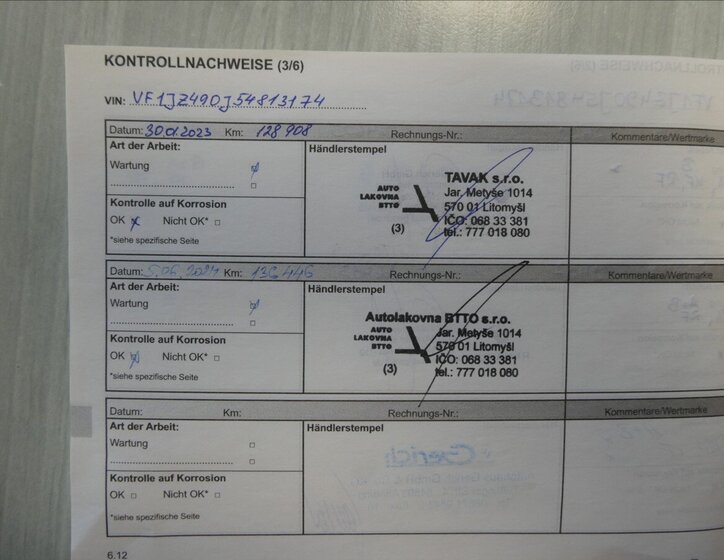 KONTROLLNACHWEISE (3/6)
VIN: VF1JZ49DJ54813174
Datum: 30.01.2023 Km: 128 908 Rechnungs-Nr.: Kommentare/Wertmarke
Art der Arbeit: Händlerstempel
Wartung
Kontrolle auf Korrosion
OK Nicht OK*
*siehe spezifische Seite
AUTO LAKOVNA BTTO
(3)
TAVAK s.r.o.
Jar. Metyše 1014
570 01 Litomyšl
IČO: 068 33 381
tel.: 777 018 080
Datum: 5.06.2024 Km: 136 446 Rechnungs-Nr.: Kommentare/Wertmarke
Art der Arbeit: Händlerstempel
Wartung
Kontrolle auf Korrosion
OK Nicht OK*
*siehe spezifische Seite
Autolakovna BTTO s.r.o.
AUTO LAKOVNA BTTO
(3)
Jar. Metyše 1014
570 01 Litomyšl
IČO: 068 33 381
tel.: 777 018 080
Datum: Km: Rechnungs-Nr.: Kommentare/Wertmarke
Art der Arbeit: Händlerstempel
Wartung
Kontrolle auf Korrosion
OK Nicht OK*
*siehe spezifische Seite
6.12